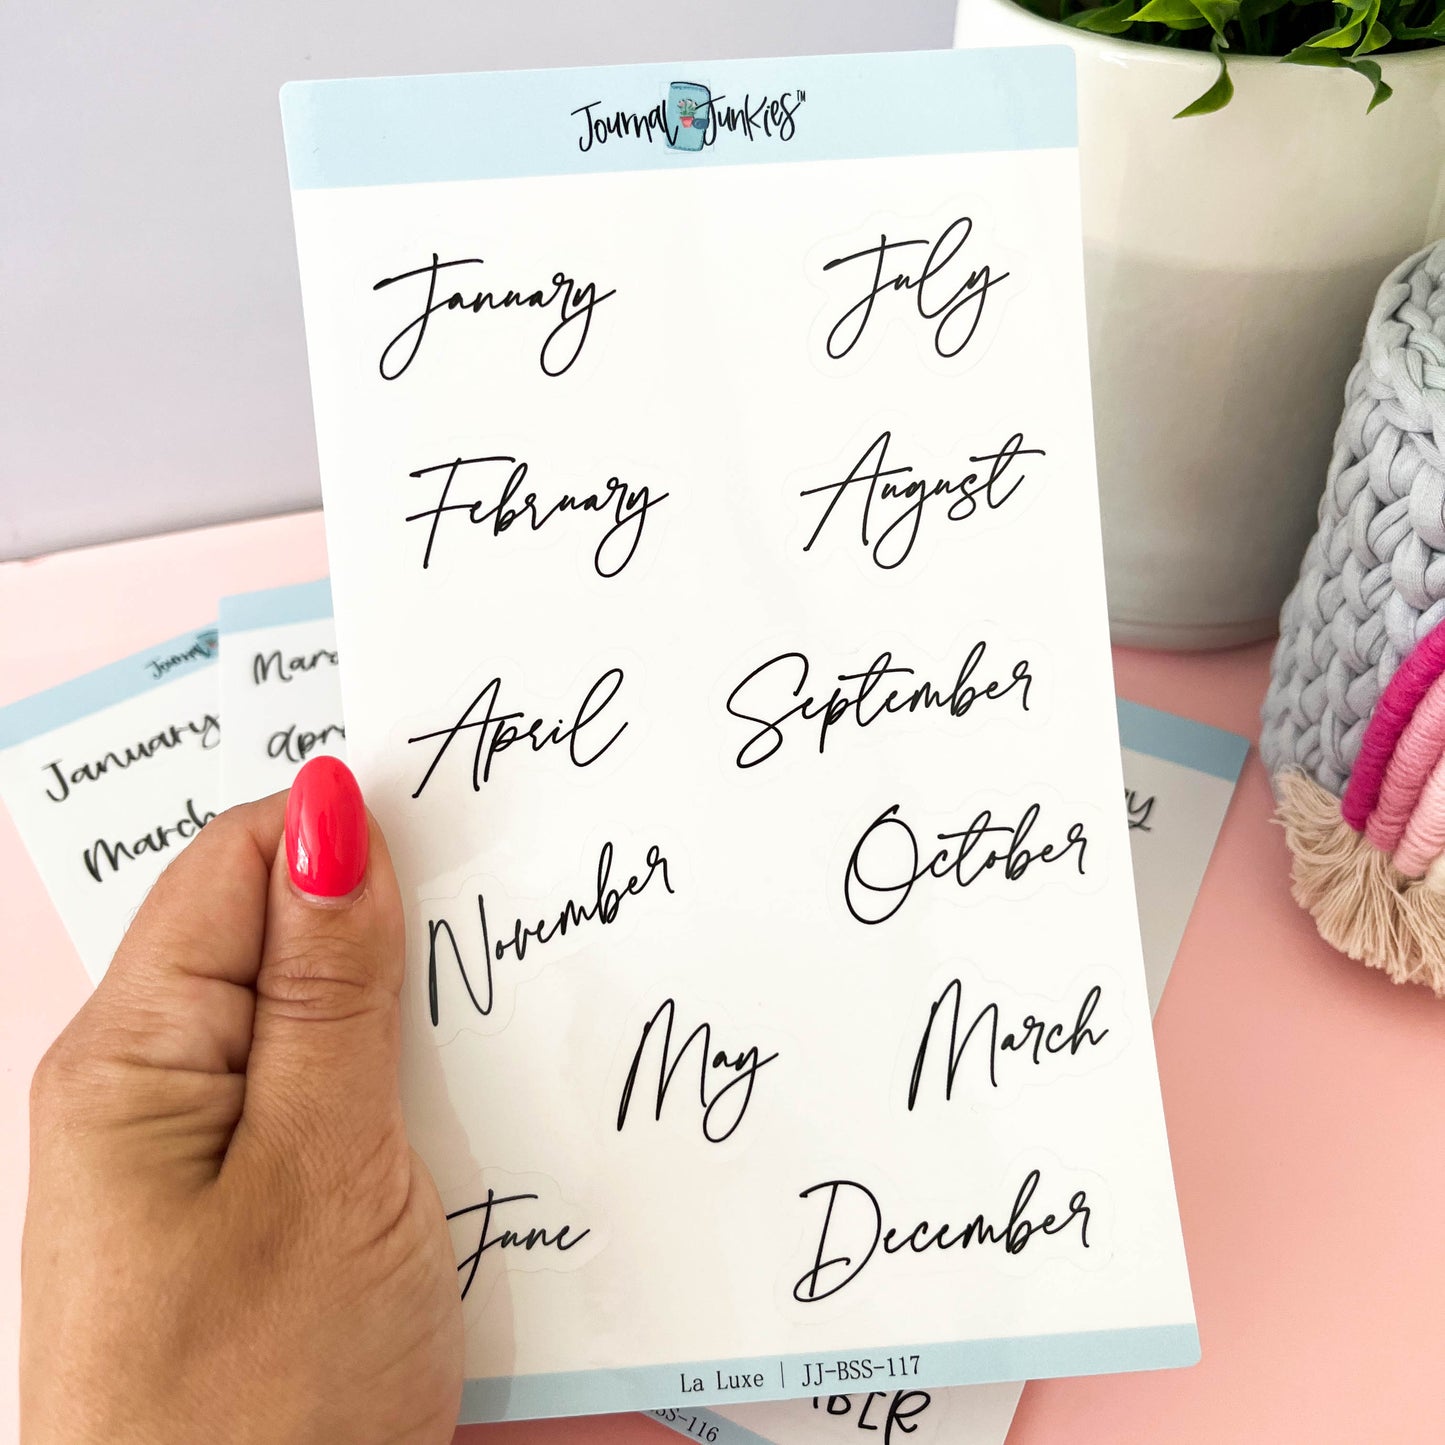 Journal Junkies™
January
July
February
August
April
September
November
October
May
March
June
December
La Luxe | JJ-BSS-117
Journal
January
March